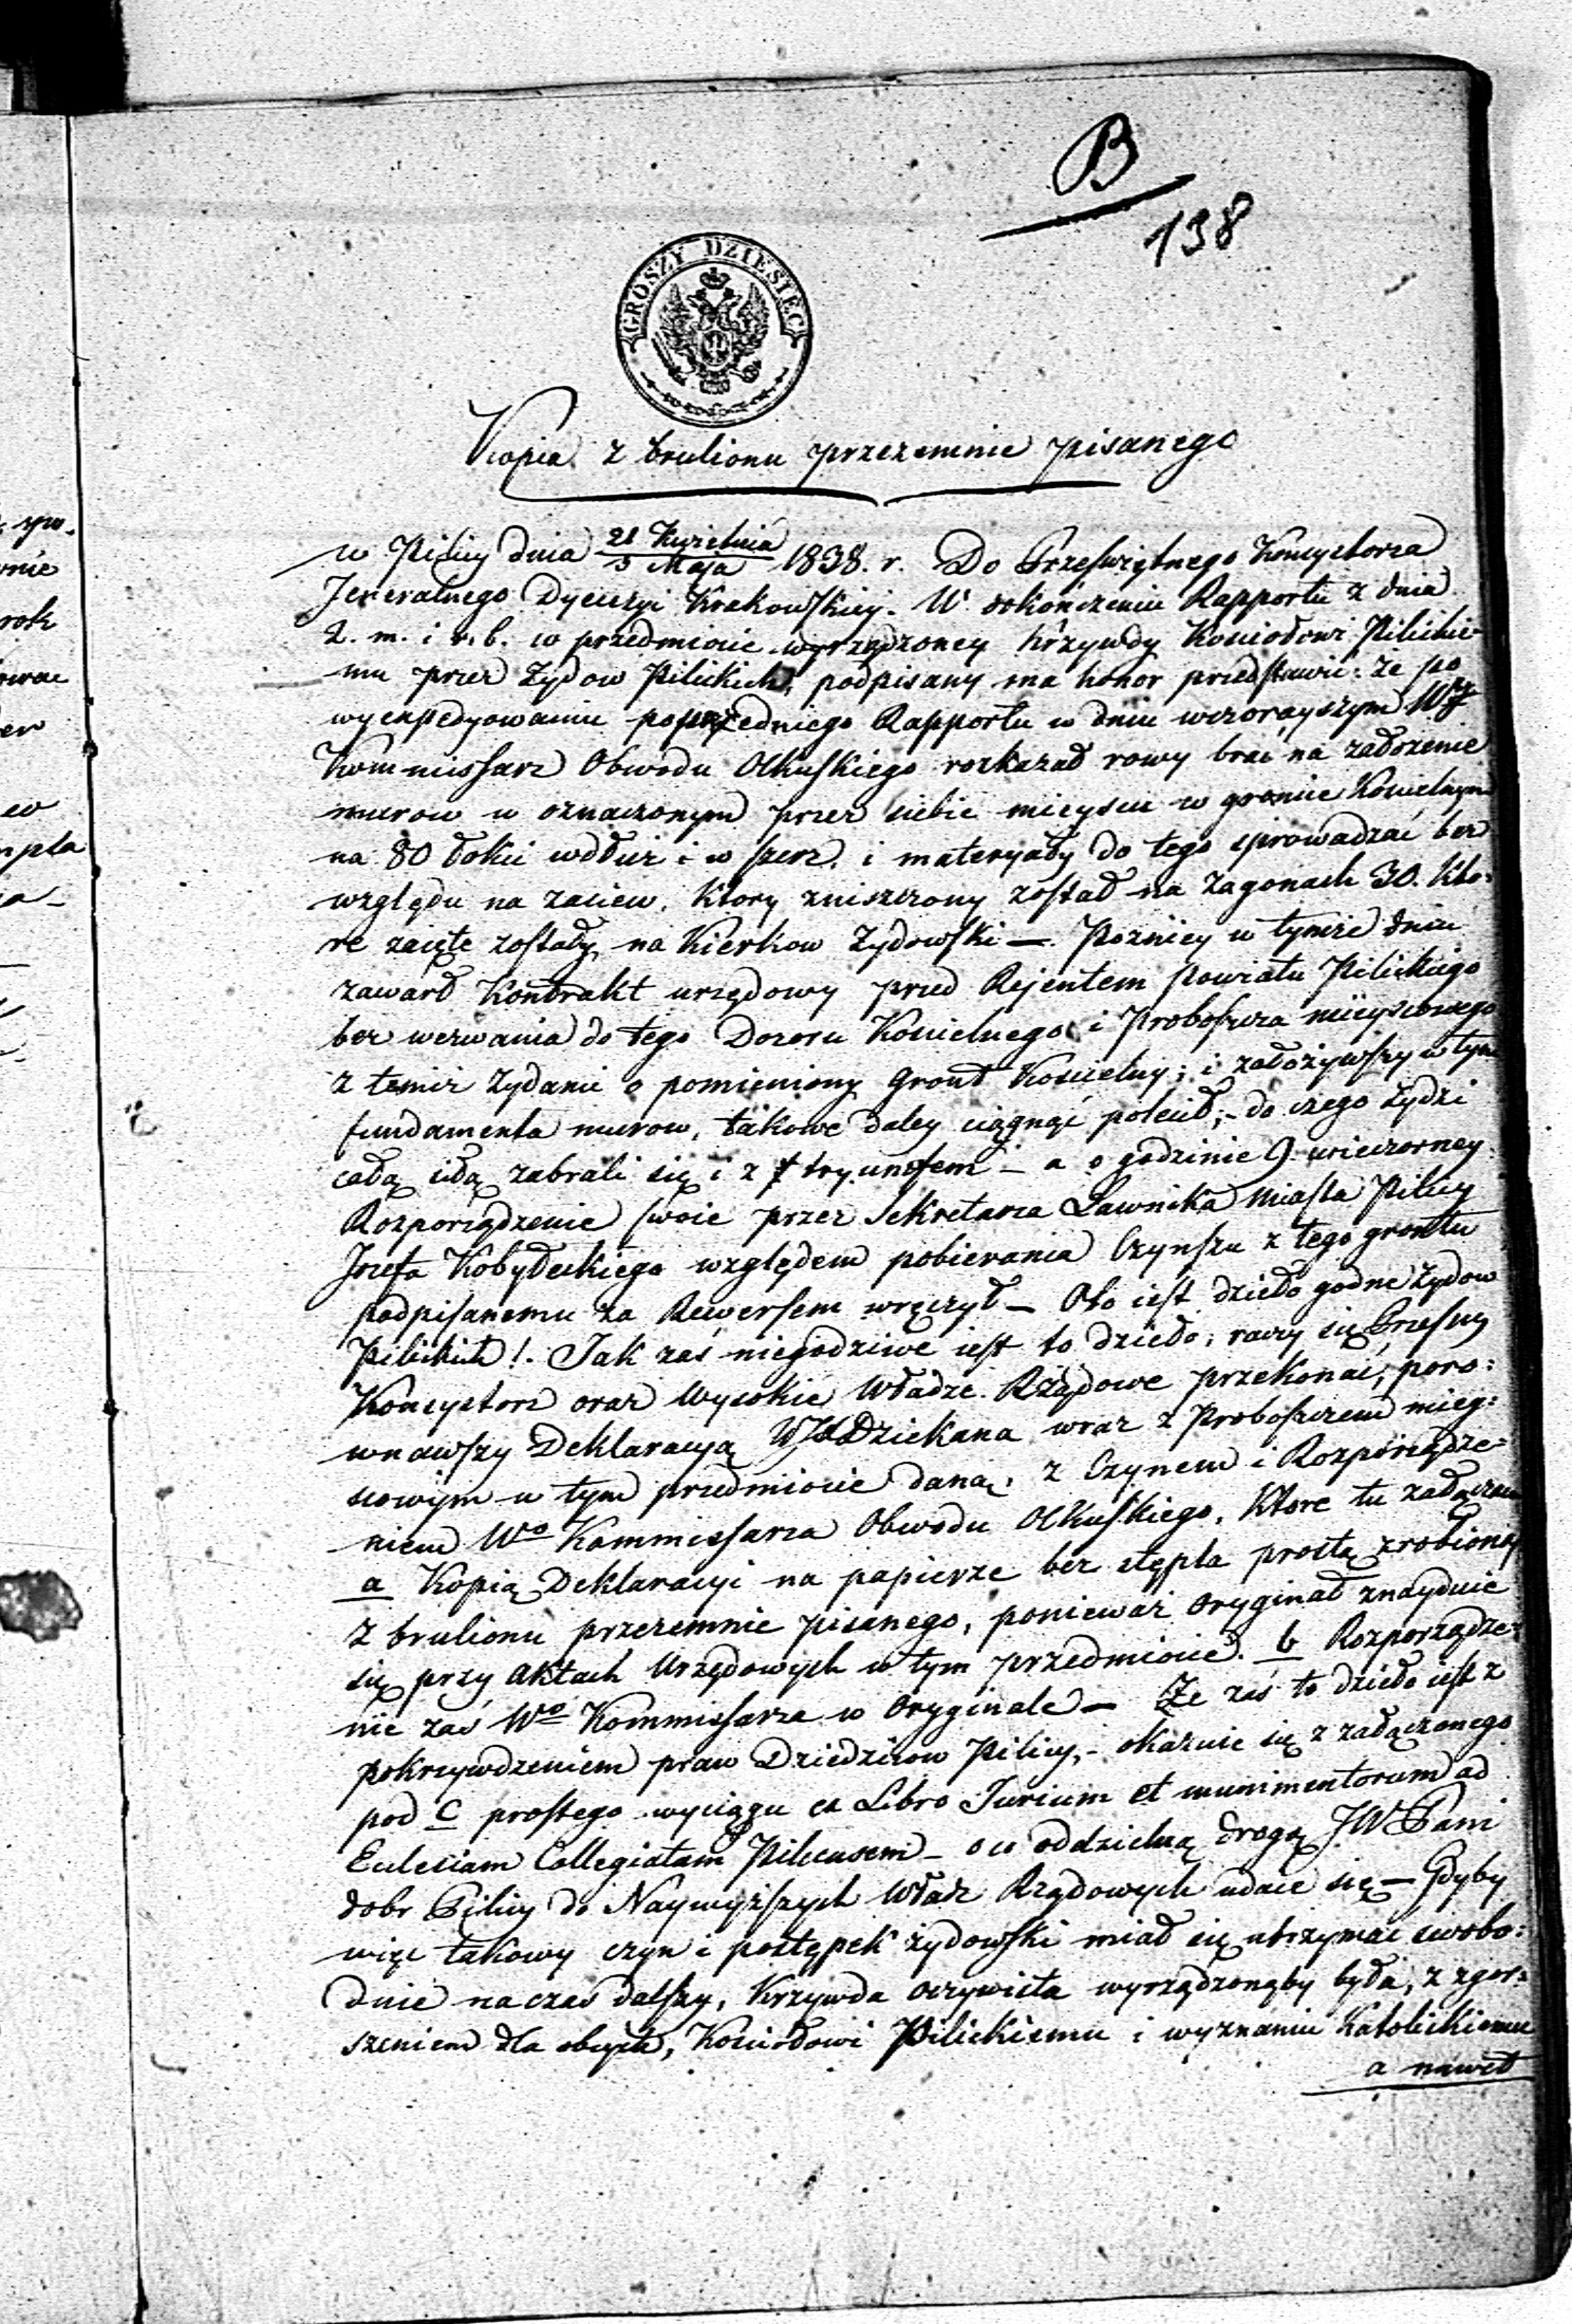 B
138
GROSZY DZIESIĘĆ
Kopia z brulionu przezemnie pisanego
w Pilicy dnia 21 Kwietnia / 3 Maja 1838. r. Do Przeświętnego Konsystorza
Jeneralnego Dyecezyi Krakowskiej. W dokończeniu Rapportu z dnia
2. m. i r. b. w przedmiocie wyrządzoney krzywdy Kościołowi Pilickie-
mu przez Żydow Pilickich, podpisany ma honor przedstawić: że po
wyexpedyowaniu poprzedniego Rapportu w dniu wczorayszym Wy
Kommissarz Obwodu Olkuskiego rozkazał rowy brać na założenie
murow w oznaczonym przez siebie mieyscu w gruncie Kościelnym
na 80 łokci wdłuż i w szerz, i materyały do tego sprowadzać bez
względu na zasiew, ktory zniszczony został na zagonach 30. kto:
re zaięte zostały na Kierkow Żydowski —. Pozniey w tymże dniu
zawarł Kontrakt urzędowy przed Rejentem Powiatu Pilickiego
bez wezwania do tego Dozoru Kościelnego i Proboszcza mieyscowego
z temiż Żydami o pomieniony Gront Kościelny; i założywszy w tym
fundamenta murow, takowe daley ciągnąć polecił; - do czego Żydzi
całą siłą zabrali się i z tryumfem - a o godzinie 9. wieczorney
Rozporządzenie swoie przez Sekretarza Ławnika Miasta Pilicy
Jozefa Kobyłeckiego względem pobierania Czynszu z tego grontu
podpisanemu za Rewersem wręczył — Oto iest dzieło godne Żydow
Pilickich!. Jak zaś niegodziwe iest to dzieło, raczy się Przesny
Konsystorz oraz Wysokie Władze Rządowe przekonać, poro:
wnawszy Deklaracyą WJXDziekana wraz z Proboszczem miey:
scowym w tym przedmiocie daną, z Czynem i Rozporządze-
niem Wo Kommissarza Obwodu Olkuskiego, Ktore tu załączam
a Kopią Deklaracyi na papierze bez stępla prostą zrobioną
z brulionu przezemnie pisanego, ponieważ oryginał znayduie
się przy aktach Urzędowych w tym przedmiocie. b Rozporządze-
nie zaś Wo Kommissarza w Oryginale — Że zaś to dzieło iest z
pokrzywdzeniem praw Dziedzicow Pilicy, - okazuie się z załączonego
pod C prostego wyciągu ex Libro Jurium et munimentorum ad
Ecclesiam Collegiatam Pilcensem - o co oddzielną drogą JW Pani
dobr Pilicy do Naywyższych Władz Rządowych udaie się — Gdyby
więc takowy czyn i postępek żydowski miał się utrzymać swobo:
dnie na czas dalszy, Krzywda oczywista wyrządzonąby była, z zgor:
szeniem dla obcych, Kościołowi Pilickiemu i wyznaniu Katolickiemu
a nawet